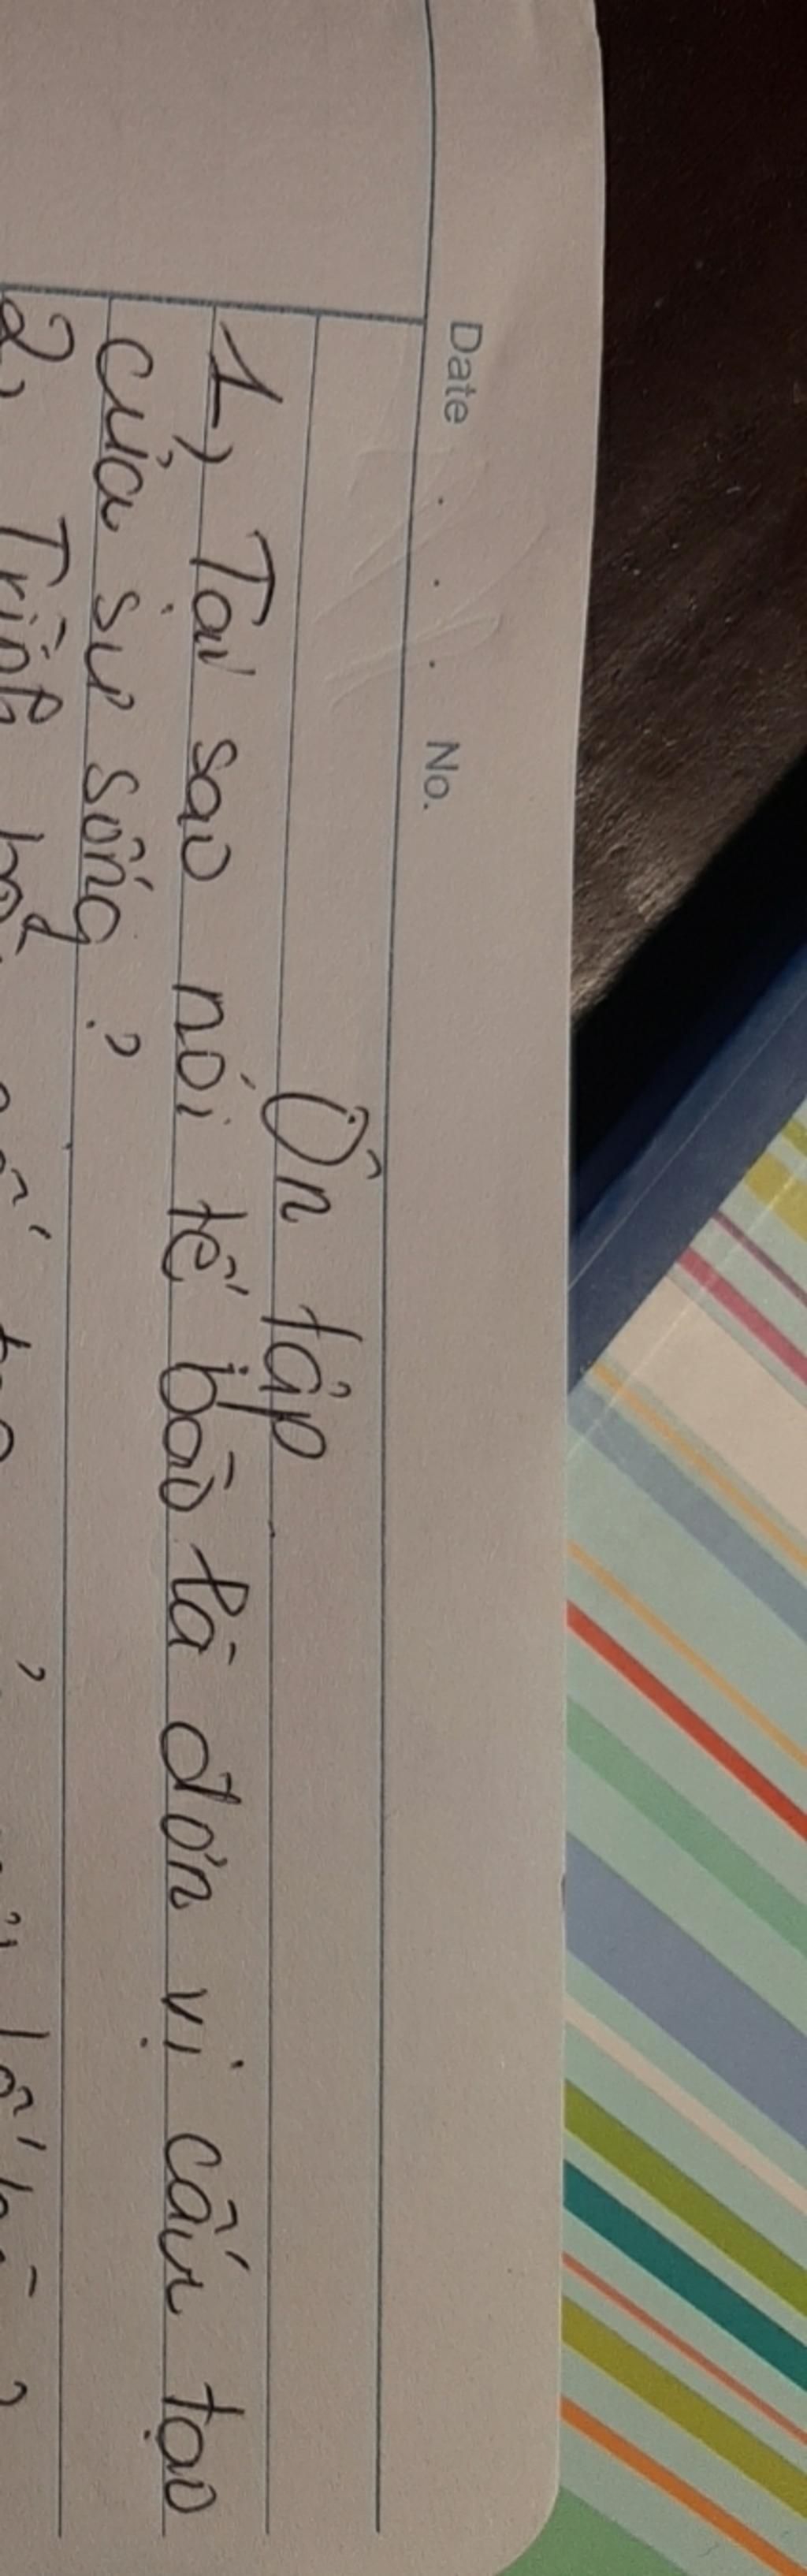 Date . . . No.
Ôn tập
1, Tại sao nói tế bào là đơn vị cấu tạo
của sự sống?
2, Trình